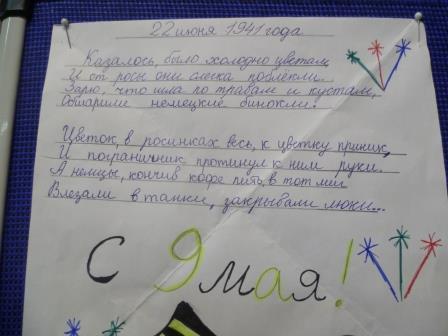 22 июня 1941 года
Казалось, было холодно цветам,
И от росы они слегка поблёкли.
Зарю, что шла по травам и кустам,
Обшарили немецкие бинокли.
Цветок, в росинках весь, к цветку приник,
И пограничник протянул к ним руки.
А немцы, кончив кофе пить, в тот миг
Влезали в танки, закрывали люки...
С 9 мая!